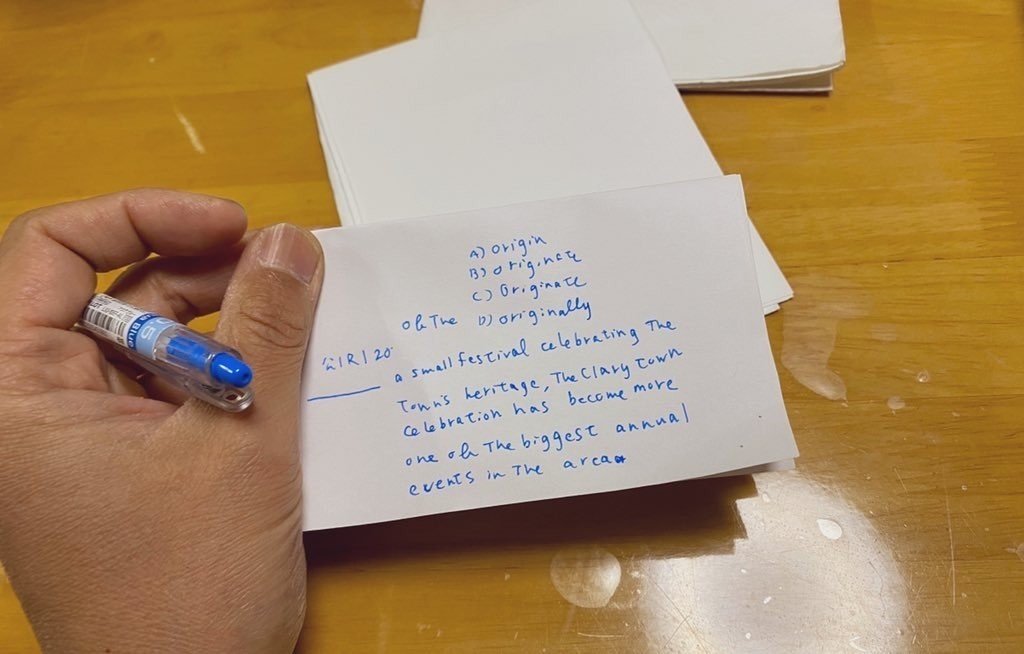 A) origin
B) originate
C) Originate
of the D) originally
20
a small festival celebrating The
Town's heritage, The Clary Town
celebration has become more
one of The biggest annual
events in The area.